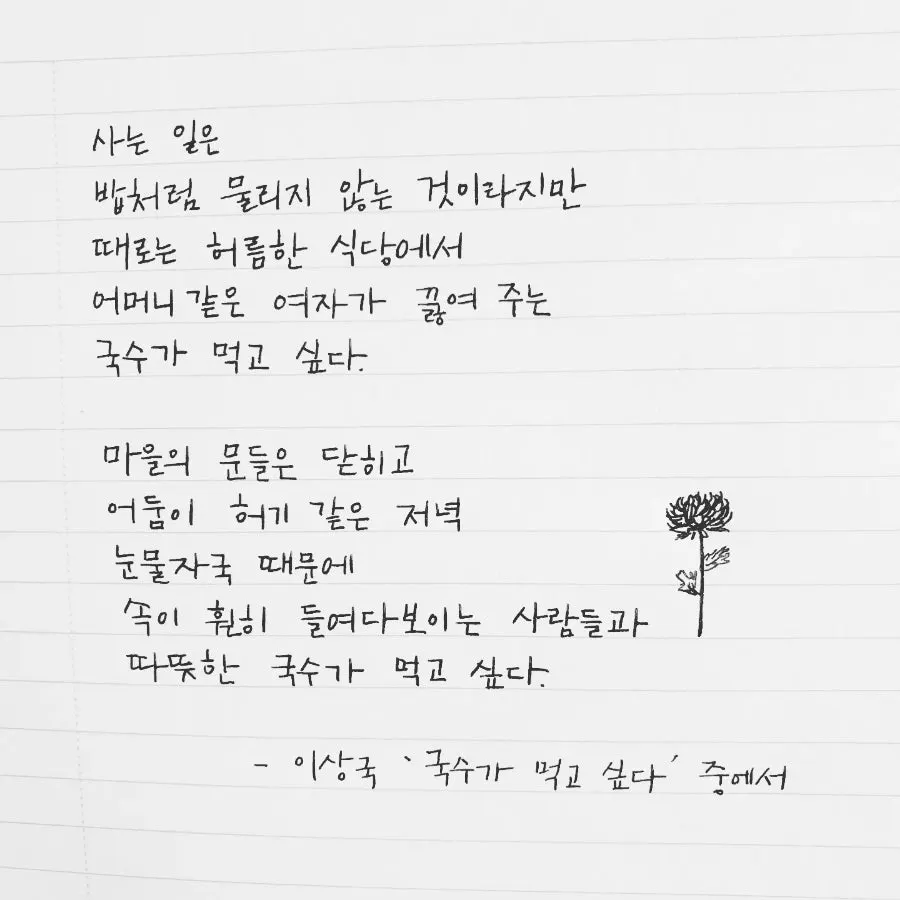 사는 일은
밥처럼 물리지 않는 것이라지만
때로는 허름한 식당에서
어머니 같은 여자가 끓여 주는
국수가 먹고 싶다.
마을의 문들은 닫히고
어둠이 허기 같은 저녁
눈물자국 때문에
속이 훤히 들여다보이는 사람들과
따뜻한 국수가 먹고 싶다.
- 이상국 '국수가 먹고 싶다' 중에서